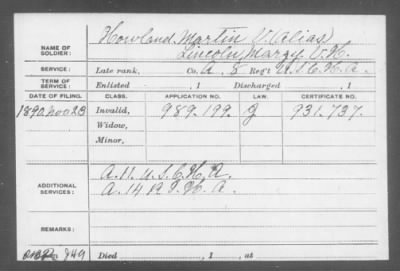 Howland, Martin V. (Alias)
NAME OF SOLDIER:
Lincoln, Margy. V. H.
SERVICE:
Late rank, Co. A. 8 Reg't U.S.C.H.A.
TERM OF SERVICE:
Enlisted , 1 Discharged , 1
DATE OF FILING. CLASS. APPLICATION NO. LAW. CERTIFICATE NO.
1890 Nov 28 Invalid, 989.199. J 931.737.
Widow,
Minor,
ADDITIONAL SERVICES:
A. 11. U.S.C.H.A.
A. 14 R.I.H.A.
REMARKS:
Died , 1 , at